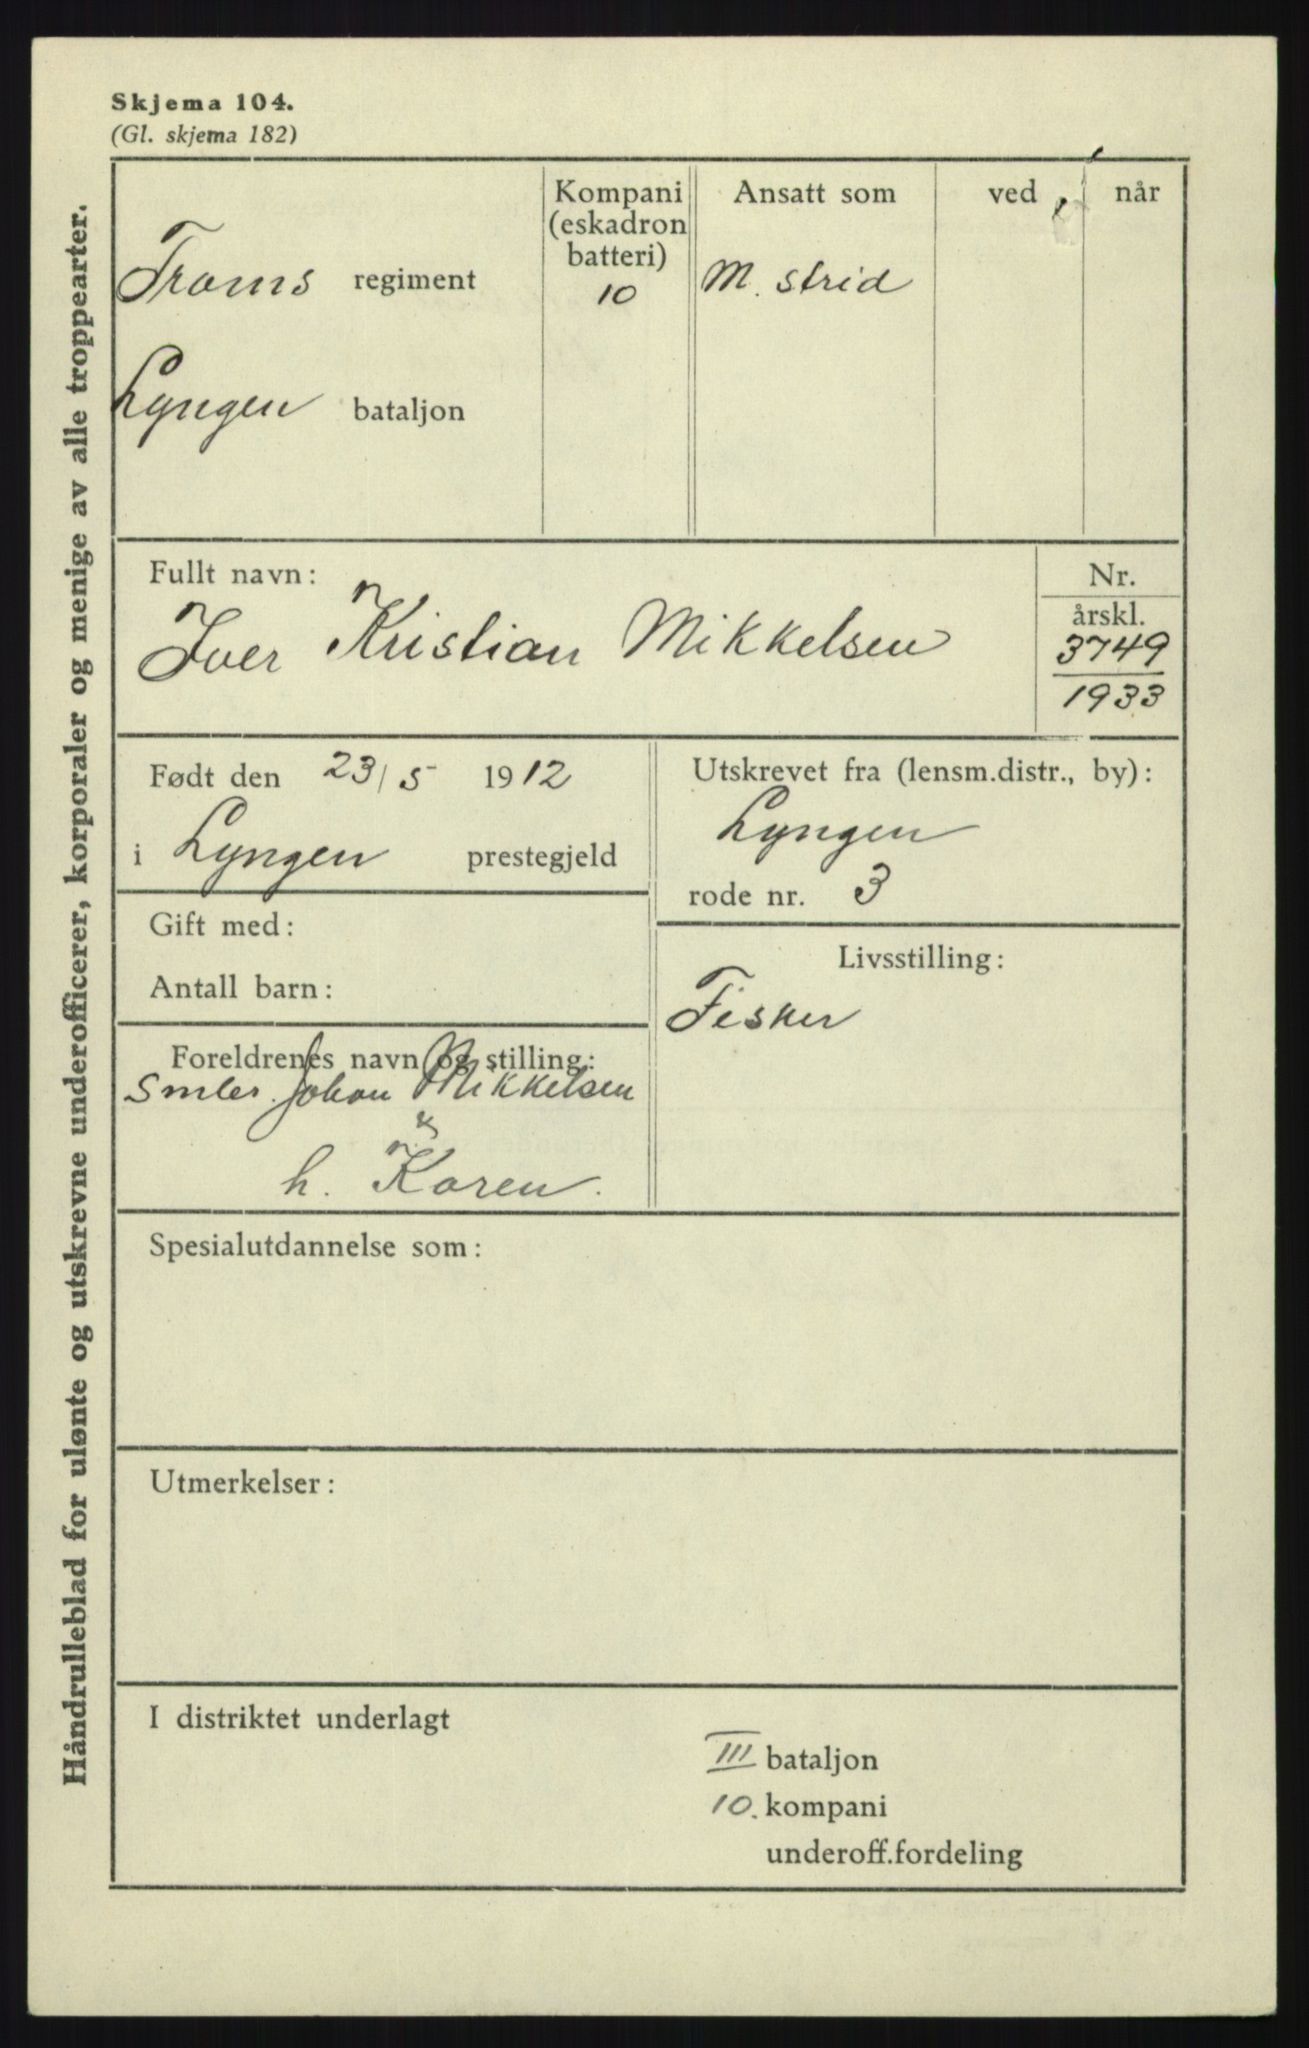 Skjema 104.
(Gl. skjema 182)
Håndrulleblad for ulønte og utskrevne underofficerer, korporaler og menige av alle troppearter.
Troms regiment
Lyngen bataljon
Kompani
(eskadron
batteri)
10
Ansatt som
M. strid
ved
når
Fullt navn:
Iver Kristian Mikkelsen
Nr.
årskl.
3749
1933
Født den 23/5 1912
i Lyngen prestegjeld
Utskrevet fra (lensm.distr., by):
Lyngen
rode nr. 3
Gift med:
Antall barn:
Livsstilling:
Fisker
Foreldrenes navn og stilling:
Smbr. Johan Mikkelsen
&
h. Karen.
Spesialutdannelse som:
Utmerkelser:
I distriktet underlagt
III bataljon
10. kompani
underoff.fordeling